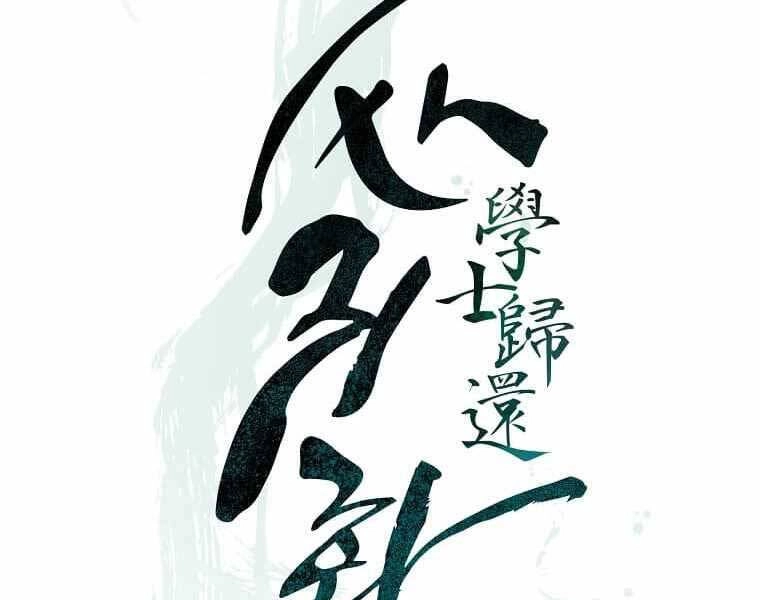 사
귀
환
學士歸還